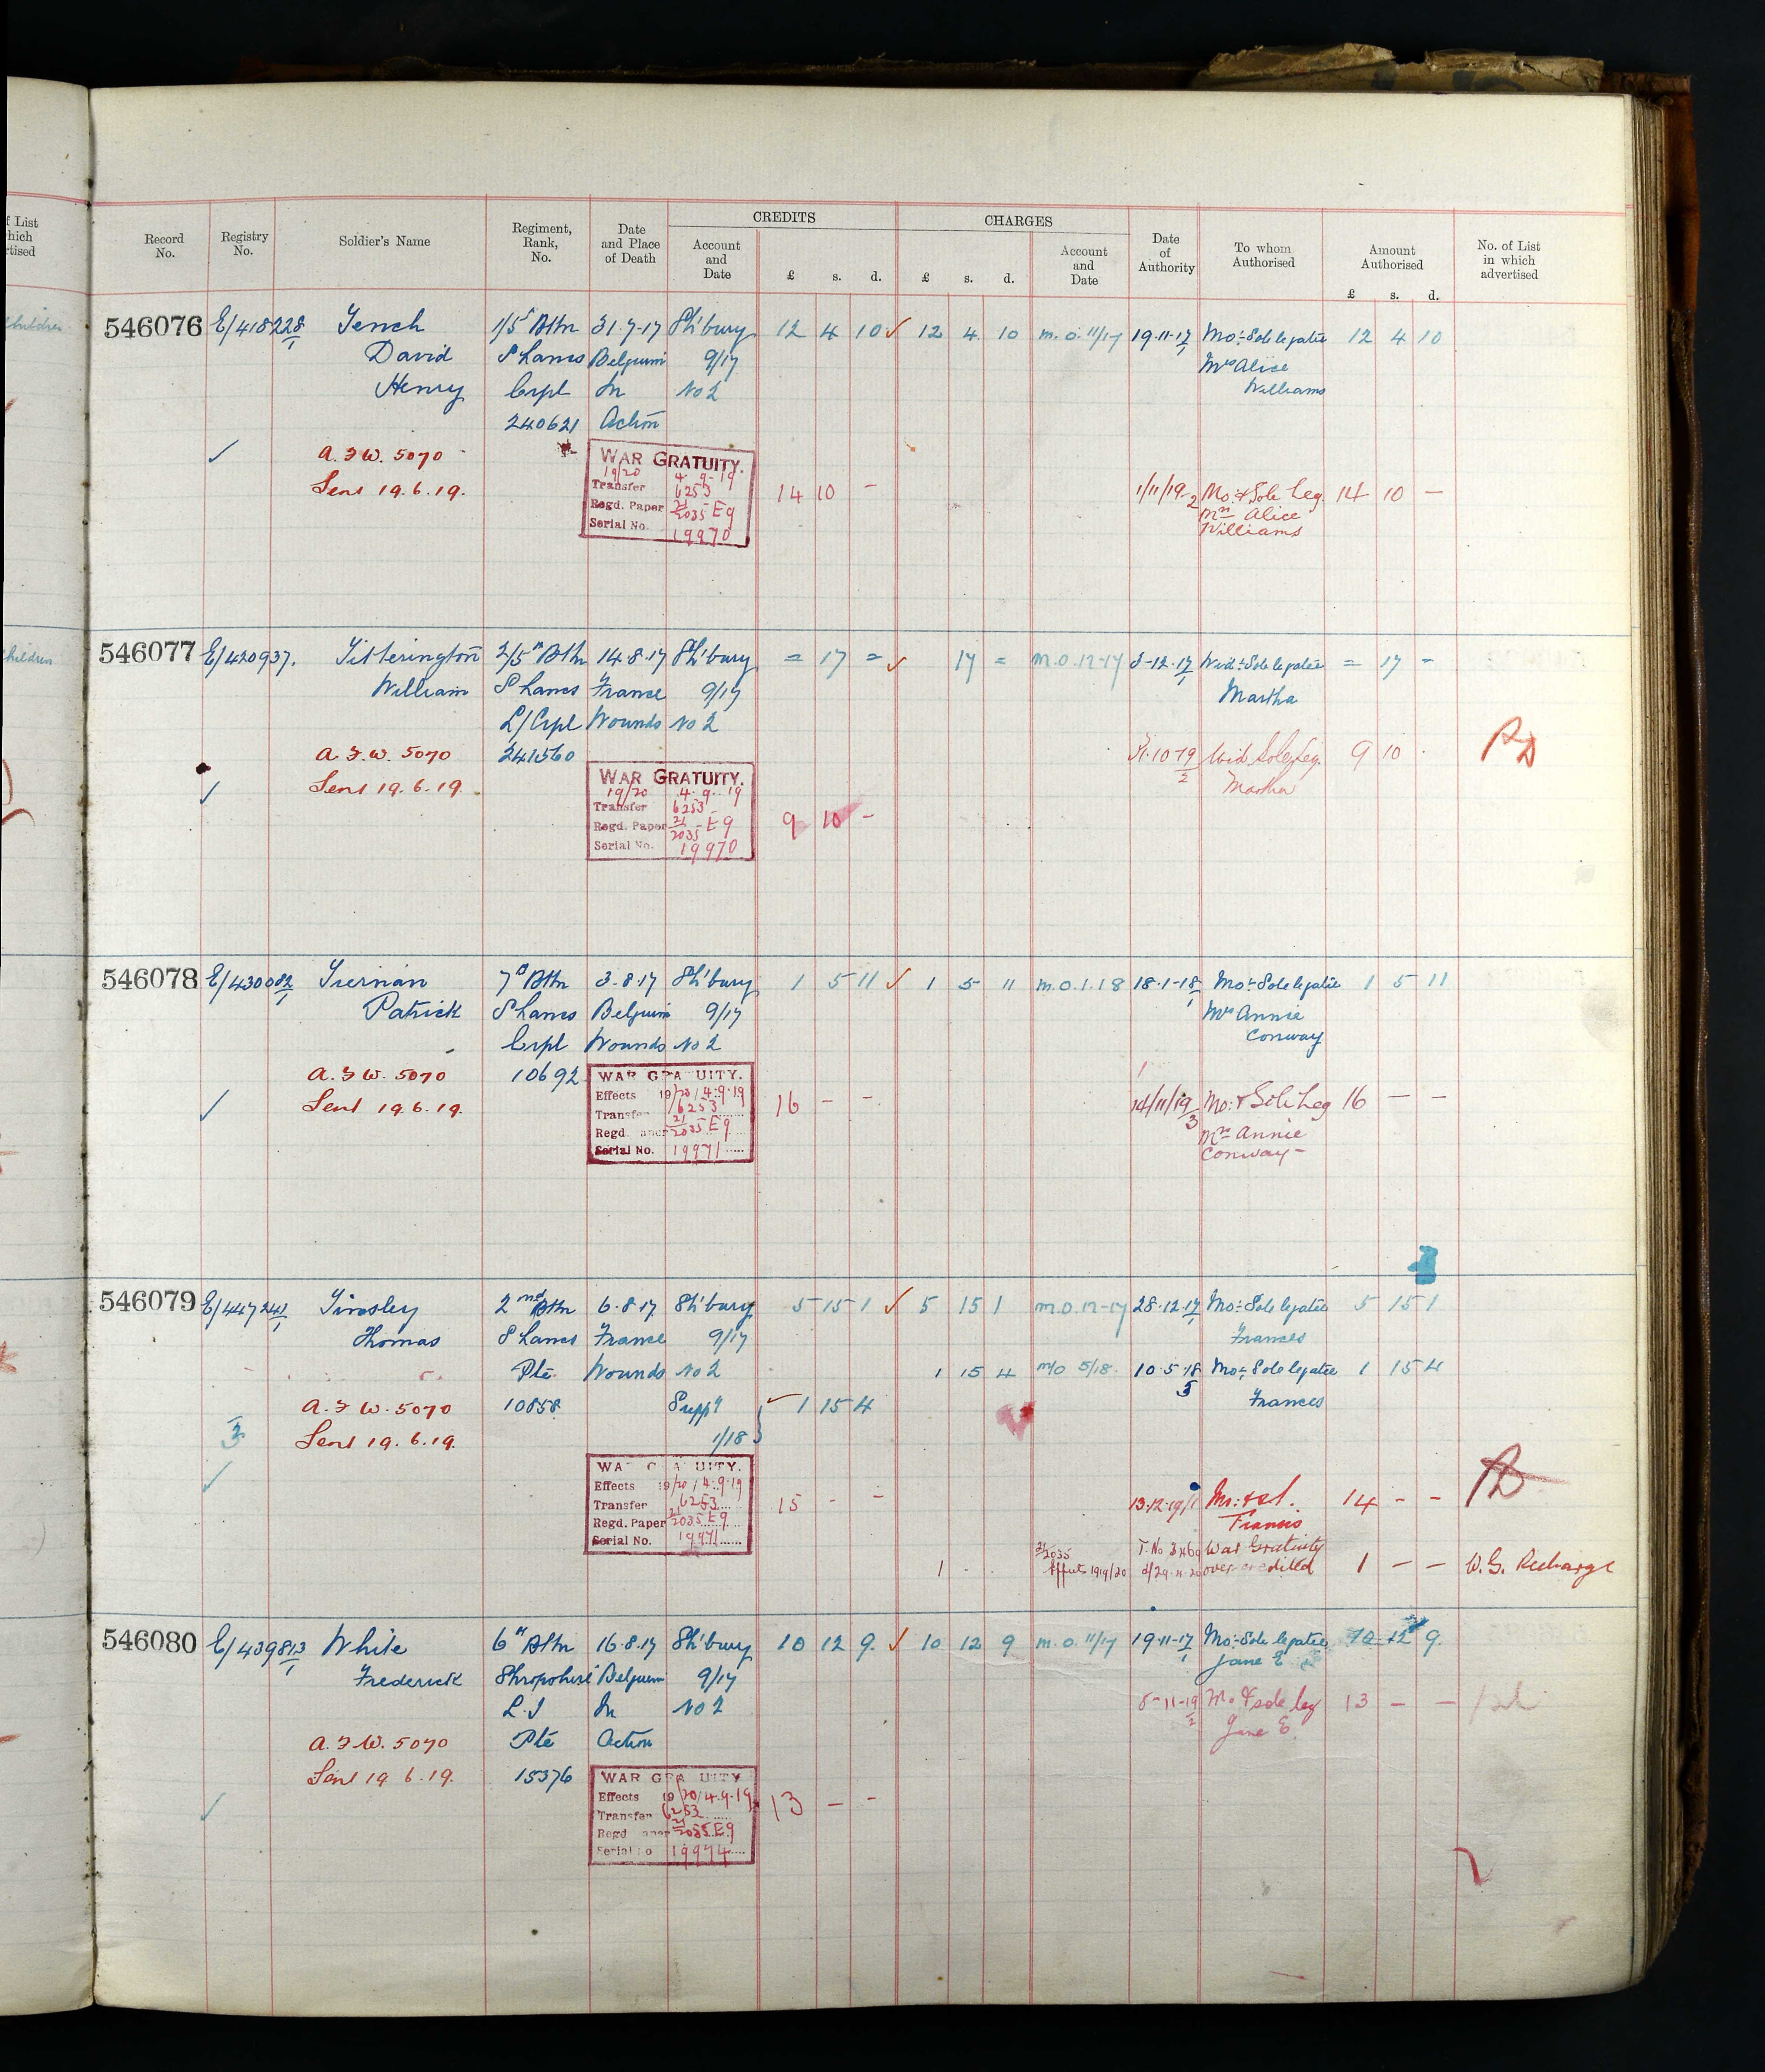 f List
hich
rtised
Record No.
Registry No.
Soldier's Name
Regiment, Rank, No.
Date and Place of Death
CREDITS
Account and Date
£ s. d.
CHARGES
£ s. d.
Account and Date
Date of Authority
To whom Authorised
Amount Authorised
£ s. d.
No. of List in which advertised
children
546076 E/418228/1 Tench 1/5 Bttn 31.7.17 Sh'bury 12 4 10 ✓ 12 4 10 m.o. 11/17 19.11.17/1 Mo: & Sole legatee 12 4 10
David S Lancs Belgium 9/17 Mrs Alice
Henry Corpl In No 2 Williams
240621 Action
✓ A.F.W. 5070
Sent 19.6.19.
WAR GRATUITY.
19/20 4-9-19
Transfer 6253
Regd. Paper 21/2035 E9
Serial No. 19970
14 10 - 1/11/19-2 Mo: & Sole Leg. 14 10 -
Mrs Alice
Williams
children
546077 E/420937. Titterington 2/5th Bttn 14.8.17 Sh'bury = 17 = ✓ 17 = m.o. 12-17 3-12-17/1 Wid: Sole legatee = 17 -
William S Lancs France 9/17 Martha
L/Cpl Wounds No 2
A.F.W. 5070 241560 31.10.19/2 Wid Sole Leg. 9 10
✓ Sent 19.6.19. Martha
WAR GRATUITY.
19/20 4.9.19
Transfer 6253
Regd. Paper 21/2035 E9
Serial No. 19970
9 10 -
546078 E/430082/1 Tiernan 7th Bttn 3.8.17 Sh'bury 1 5 11 ✓ 1 5 11 m.o. 1.18 18.1.18/1 Mo: Sole legatee 1 5 11
Patrick S Lancs Belgium 9/17 Mrs Annie
Corpl Wounds No 2 Conway
A.F.W. 5070 10692
✓ Sent 19.6.19.
WAR GRATUITY.
Effects 19/20 4.9.19
Transfer 6253
Regd. Paper 21/2035 E9
Serial No. 19971
16 - - 14/11/19/3 Mo: & Sole Leg 16 - -
Mrs Annie
Conway
546079 E/447241/1 Tinsley 2nd Bttn 6.8.17 Sh'bury 5 15 1 ✓ 5 15 1 m.o. 12-17 28.12.17/1 Mo: Sole legatee 5 15 1
Thomas S Lancs France 9/17 Frances
Pte Wounds No 2 1 15 4 m/o 5/18. 10.5.18 Mo: Sole legatee 1 15 4
A.F.W. 5070 10858 Supp'y ✓ 1 15 4 3 Frances
3 Sent 19.6.19. 1/18
✓
WAR GRATUITY.
Effects 19/20 4.9.19
Transfer 6253
Regd. Paper 21/2035 E9
Serial No. 19971
15 - - 13.12.19/1 Mo: & S.l. 14 - -
Frances
1 21/2035 Effects 1919/20 War Gratuity over credited 1 - - W.G. Recharge
546080 E/439813/1 White 6th Bttn 16.8.17 Sh'bury 10 12 9. ✓ 10 12 9 m.o. 11/17 19.11.17/1 Mo: Sole legatee 10 12 9.
Frederick Shropshire Belgium 9/17 Jane E
L.I In No 2 5-11-19/2 Mo & sole leg 13 - -
A.F.W. 5070 Pte Action Jane E.
Sent 19 6.19. 15376
✓
WAR GRATUITY
Effects 19/20 4.9.19
Transfer 6253
Regd Paper 21/2035 E9
Serial No 19974
13 - -